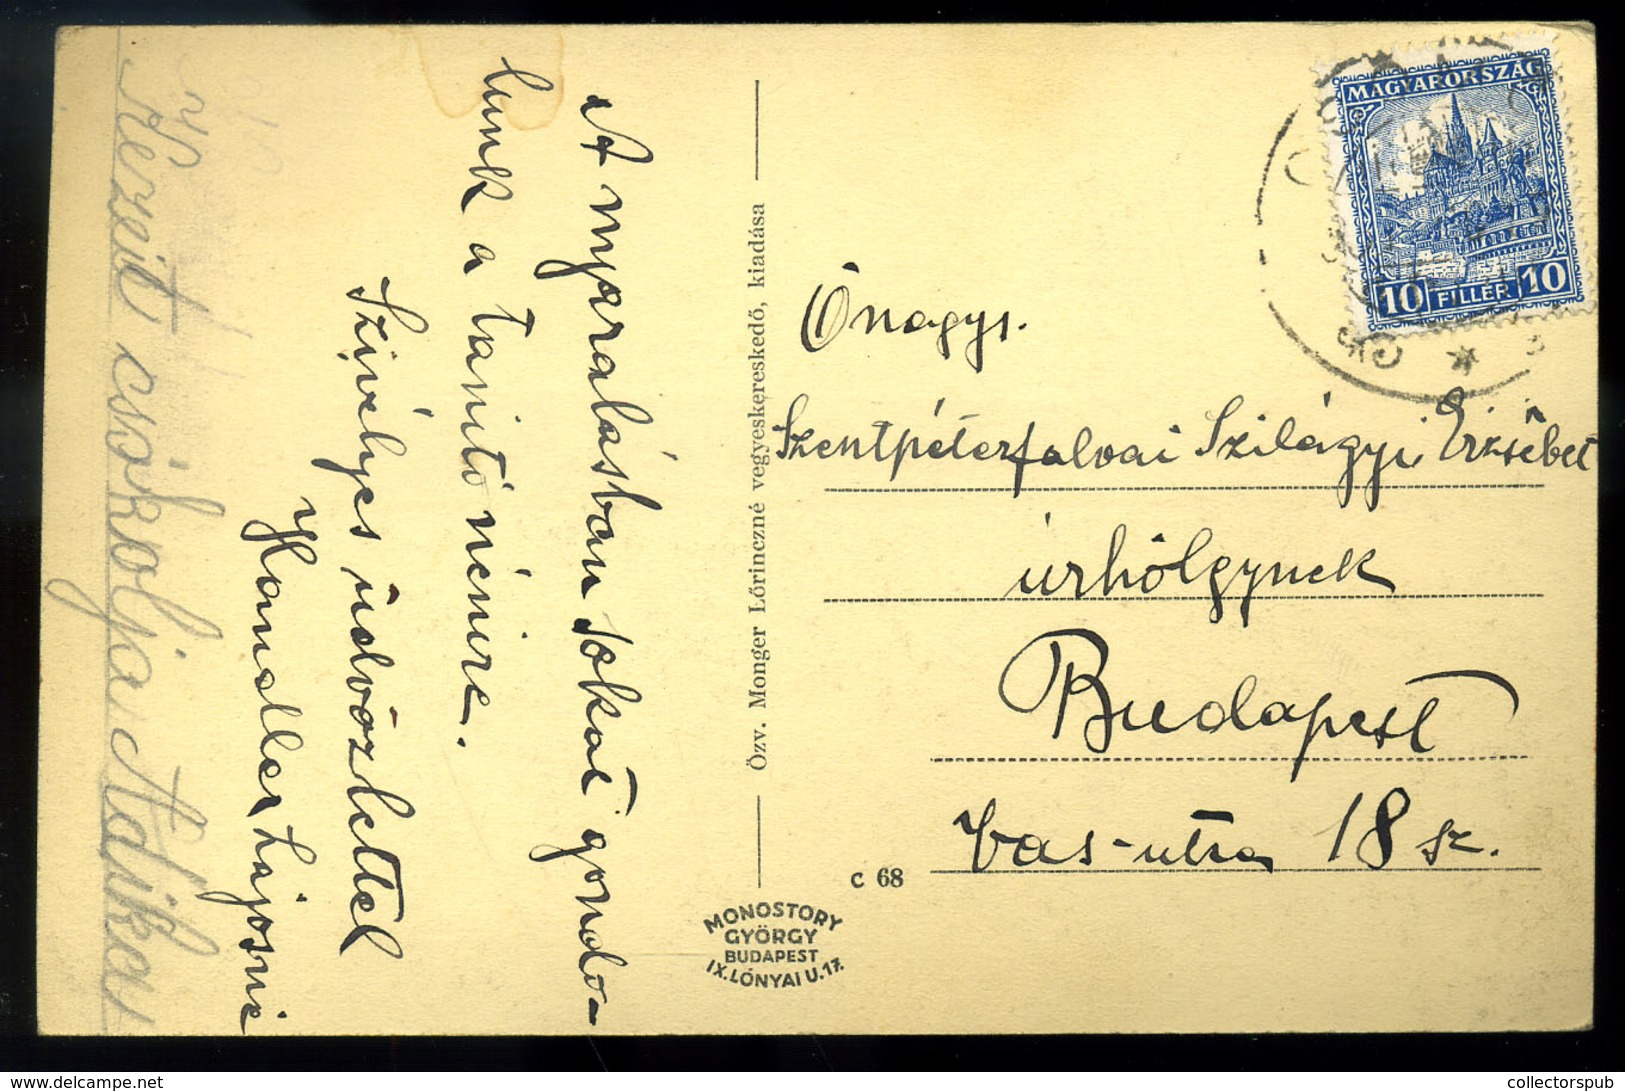 A nyaralásban sokat gondo-
lunk a tanító nénire.
Szívélyes üdvözlettel
Handler Lajosné
Kezeit csókolja
Özv. Monger Lőrinczné vegyeskereskedő, kiadása
C 68
MONOSTORY
GYÖRGY
BUDAPEST
IX. LÓNYAI U. 17.
MAGYARORSZÁG
10 FILLÉR 10
Őnagys.
Szentpéterfalvai Szilágyi Erzsébet
úrhölgynek
Budapest
Vas-utca 18 sz.
collectorspub
delcampe.net